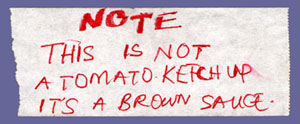 NOTE
THIS IS NOT
A TOMATO KETCHUP
IT'S A BROWN SAUCE.